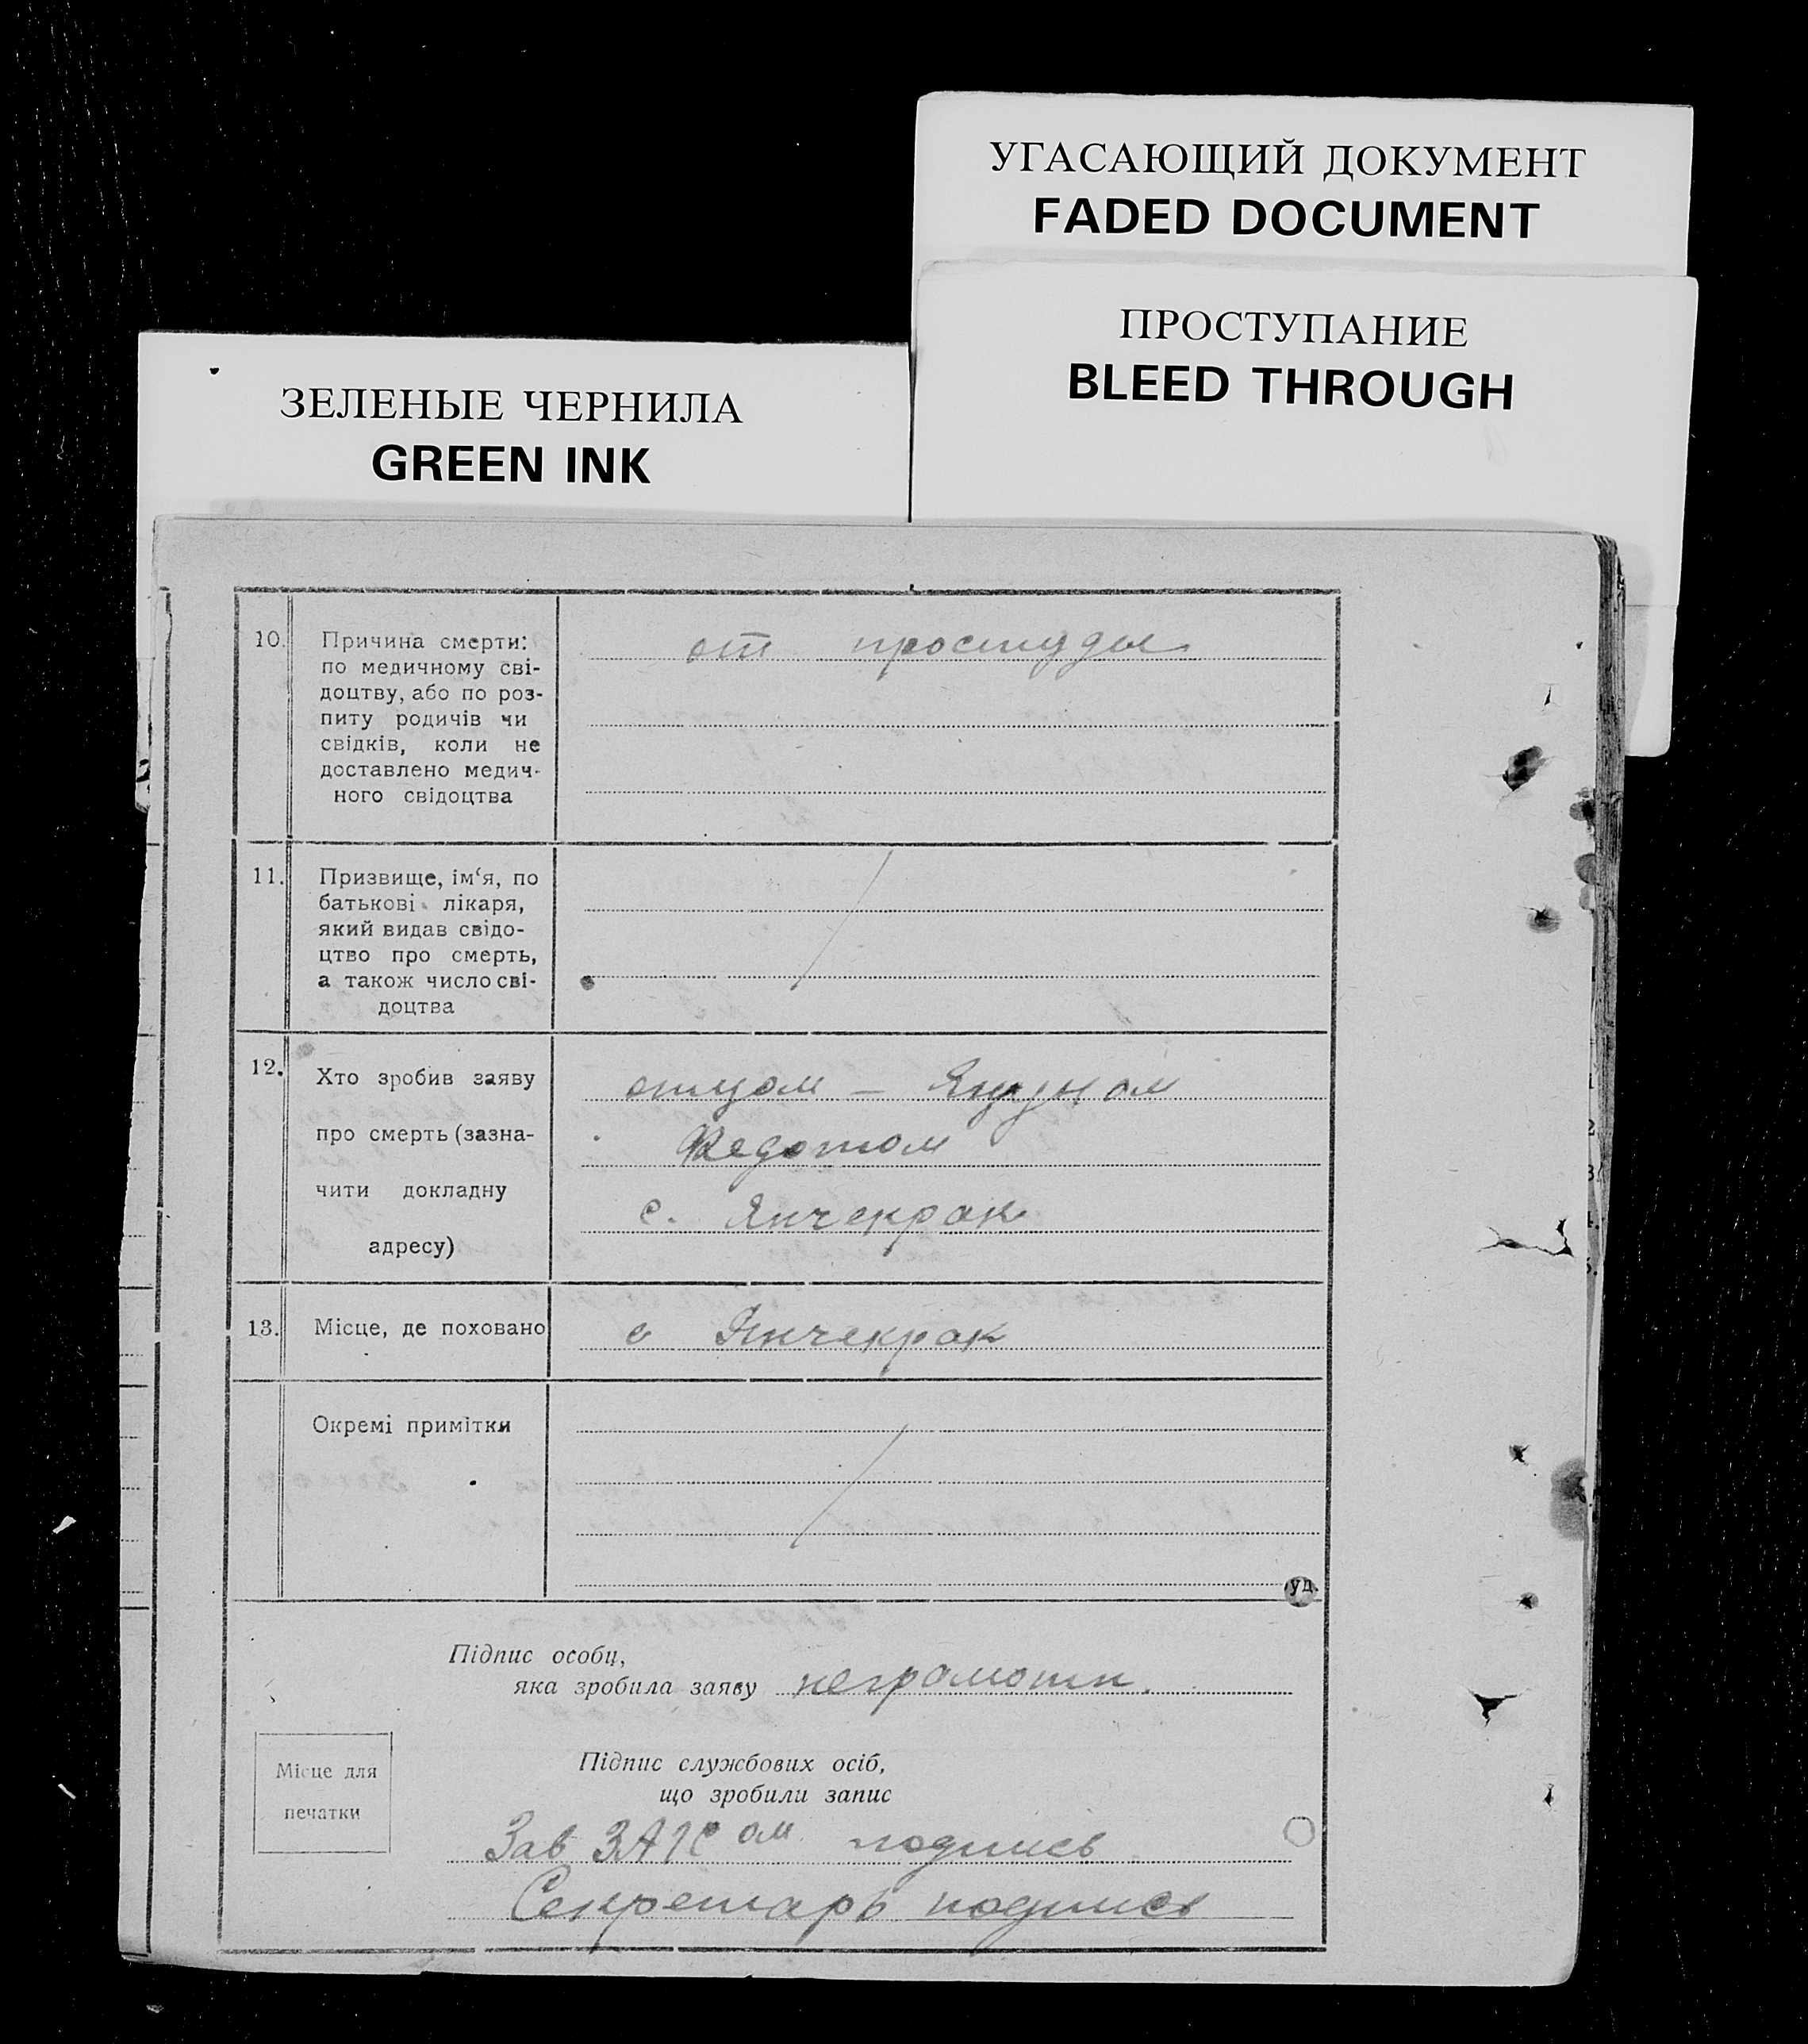 УГАСАЮЩИЙ ДОКУМЕНТ
FADED DOCUMENT
ПРОСТУПАНИЕ
BLEED THROUGH
ЗЕЛЕНЫЕ ЧЕРНИЛА
GREEN INK
10. Причина смерти: от простуды
по медичному сві-
доцтву, або по роз-
питу родичів чи
свідків, коли не
доставлено медич-
ного свідоцтва
11. Призвище, ім‘я, по
батькові лікаря,
який видав свідо-
цтво про смерть,
а також число сві-
доцтва
12. Хто зробив заяву отцом –
про смерть (зазна- Федотом
чити докладну с. Янчекрак
адресу)
13. Місце, де поховано с Янчекрак
Окремі примітки
уд.
Підпис особи,
яка зробила заяву неграмотн.
Місце для
печатки
Підпис службових осіб,
що зробили запис
Зав ЗАГСом подпись
Секретарь подпись